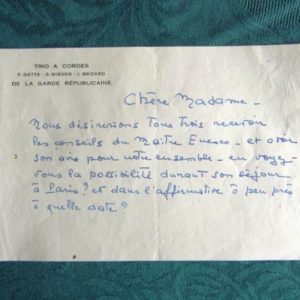 TRIO A CORDES
P. DATTE - S. WIÉNER - J. BRIZARD
DE LA GARDE RÉPUBLICAINE
Chère Madame -
Nous désirerions tous trois recevoir
les conseils du Maître Enesco - et avoir
son avis pour notre ensemble - en voyez
vous la possibilité durant son séjour
à Paris? et dans l'affirmative à peu près
à quelle date?